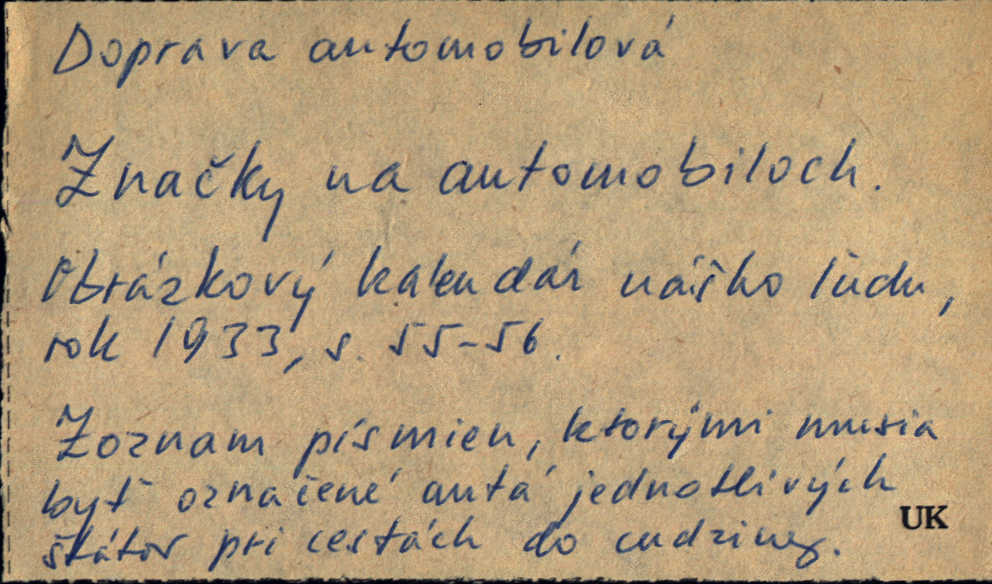 Doprava automobilová
Značky na automobiloch.
Obrázkový kalendár nášho ľudu,
rok 1933, s. 55-56.
Zoznam písmien, ktorými musia
byť označené autá jednotlivých
štátov pri cestách do cudziny.
UK